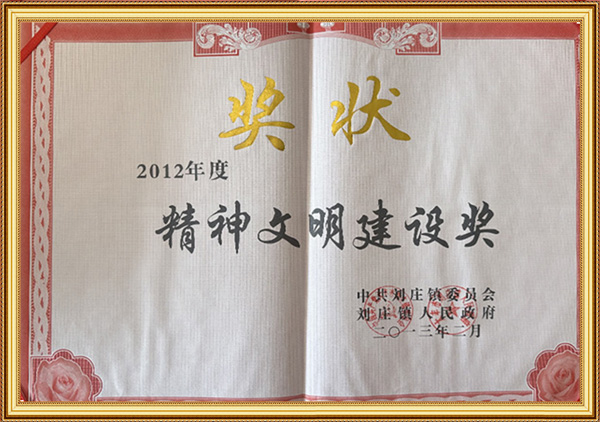 奖状
2012年度
精神文明建设奖
中共刘庄镇委员会
刘庄镇人民政府
二〇一三年二月